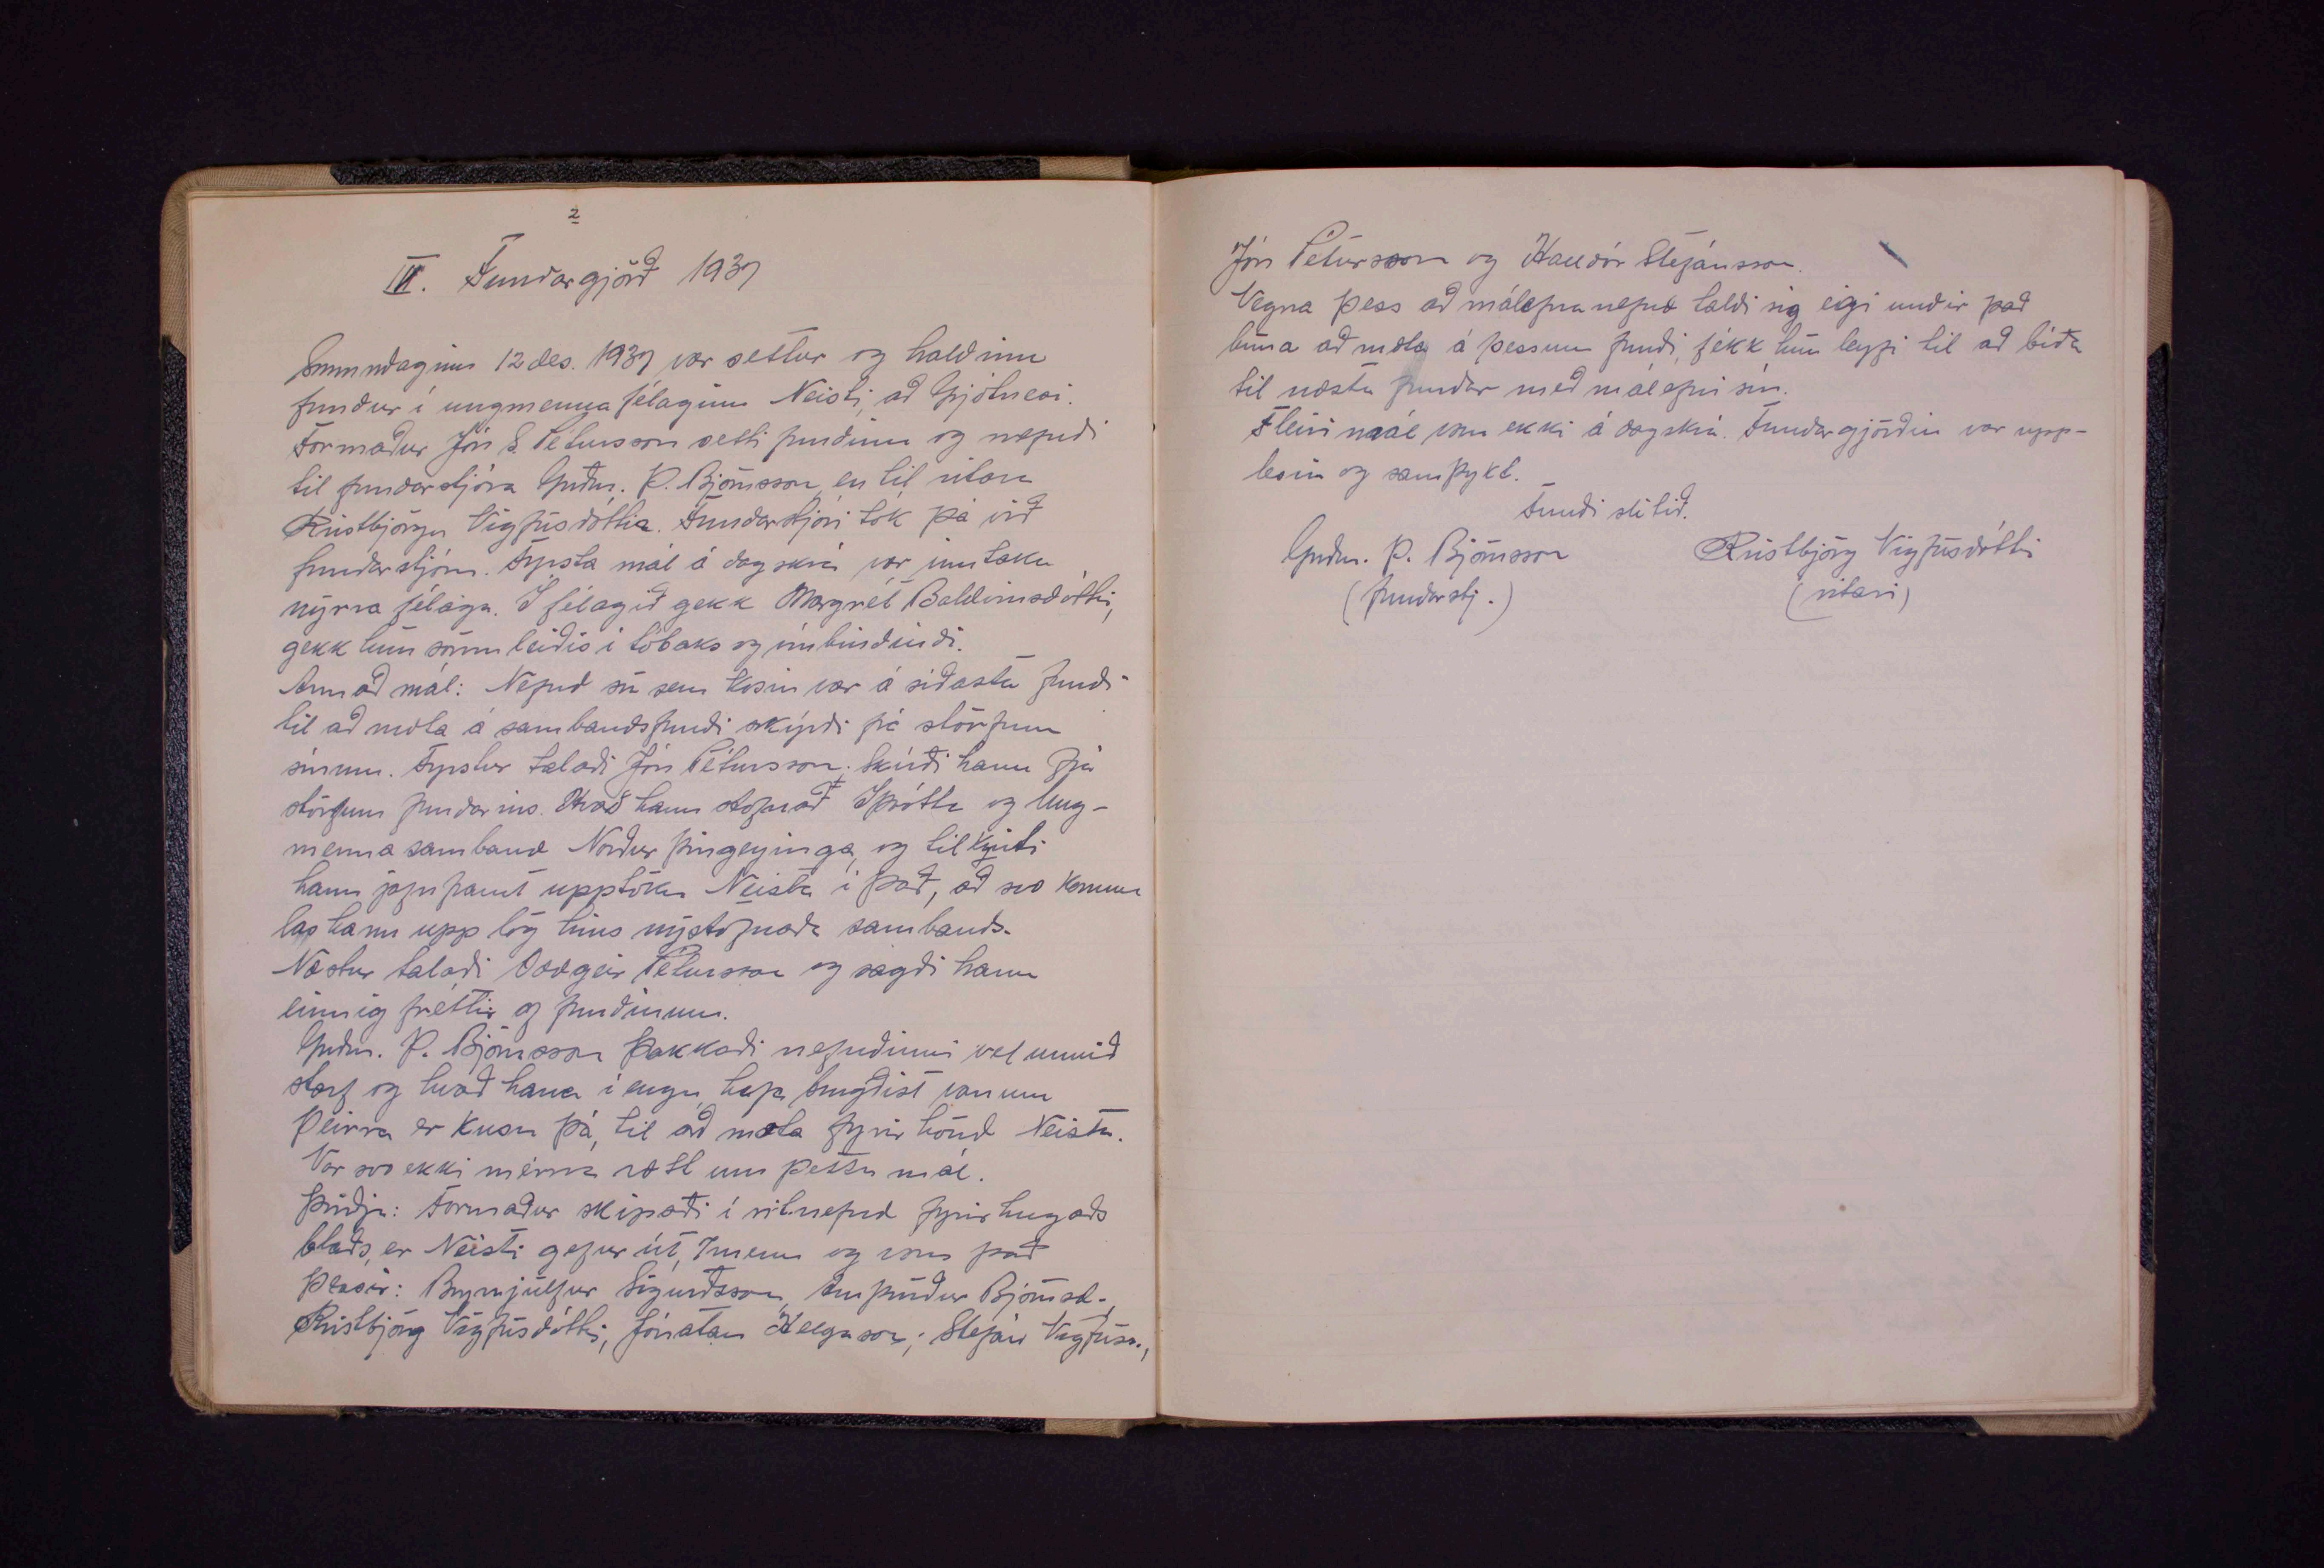 2
III. Fundargjörð 1937
Sunnudaginn 12 des. 1937 var settur og haldinn
fundur í ungmennafélaginu Neisti, að Grjótnesi.
Formaður Jón S. Pétursson setti fundinn og nefndi
til fundarstjóra Guðm. Þ. Björnsson, en til ritara
Kristbjörgu Vigfúsdóttir. Fundarstjóri tók þá við
fundarstjórn. Fyrsta mál á dagskrá var inntaka
nýrra félaga. Í félagið gekk Margrét Baldvinsdóttir,
gekk hún sömuleiðis í tóbaks og vínbindindi.
Annað mál: Nefnd sú sem kosin var á síðasta fundi
til að mæta á sambandsfundi skýrði frá störfum
sínum. Fyrstur talaði Jón Pétursson. Skírði hann frá
störfum fundarins. Kvað hann stofnað Íþrótta og Ung-
mennasamband Norður Þingeyinga, og tilkynti
hann jafnframt upptöku Neista í það, að svo komnu
las hann upp lög hins nýstofnaða sambands.
Næstur talaði Oddgeir Pétursson og sagði hann
einnig fréttir af fundinum.
Guðm. Þ. Björnsson þakkaði nefndinni vel unnið
starf og kvað hana í engu hafa brugðist vonum
þeirra er kusu þá, til að mæta fyrir hönd Neista.
Var svo ekki meira rætt um þetta mál.
Þriðja: Formaður skipaði í ritnefnd fyrirhugaðs
blaðs, er Neisti gefur út, 7 menn og voru það
þessir: Brynjúlfur Sigurðsson, Arnþrúður Björnsd.,
Kristbjörg Vigfúsdóttir, Jónatan Helgason, Stefán Vigfúss.,
Jón Pétursson og Halldór Stefánsson.
Vegna þess að málefnanefnd taldi sig eigi undir það
búna að mæta á þessum fundi, fékk hún leyfi til að bíða
til næsta fundar með málefni sín.
Fleiri mál voru ekki á dagskrá. Fundargjörðin var upp-
lesin og samþykt.
Fundi slitið.
Guðm. Þ. Björnsson Kristbjörg Vigfúsdóttir
(fundarstj.) (ritari)